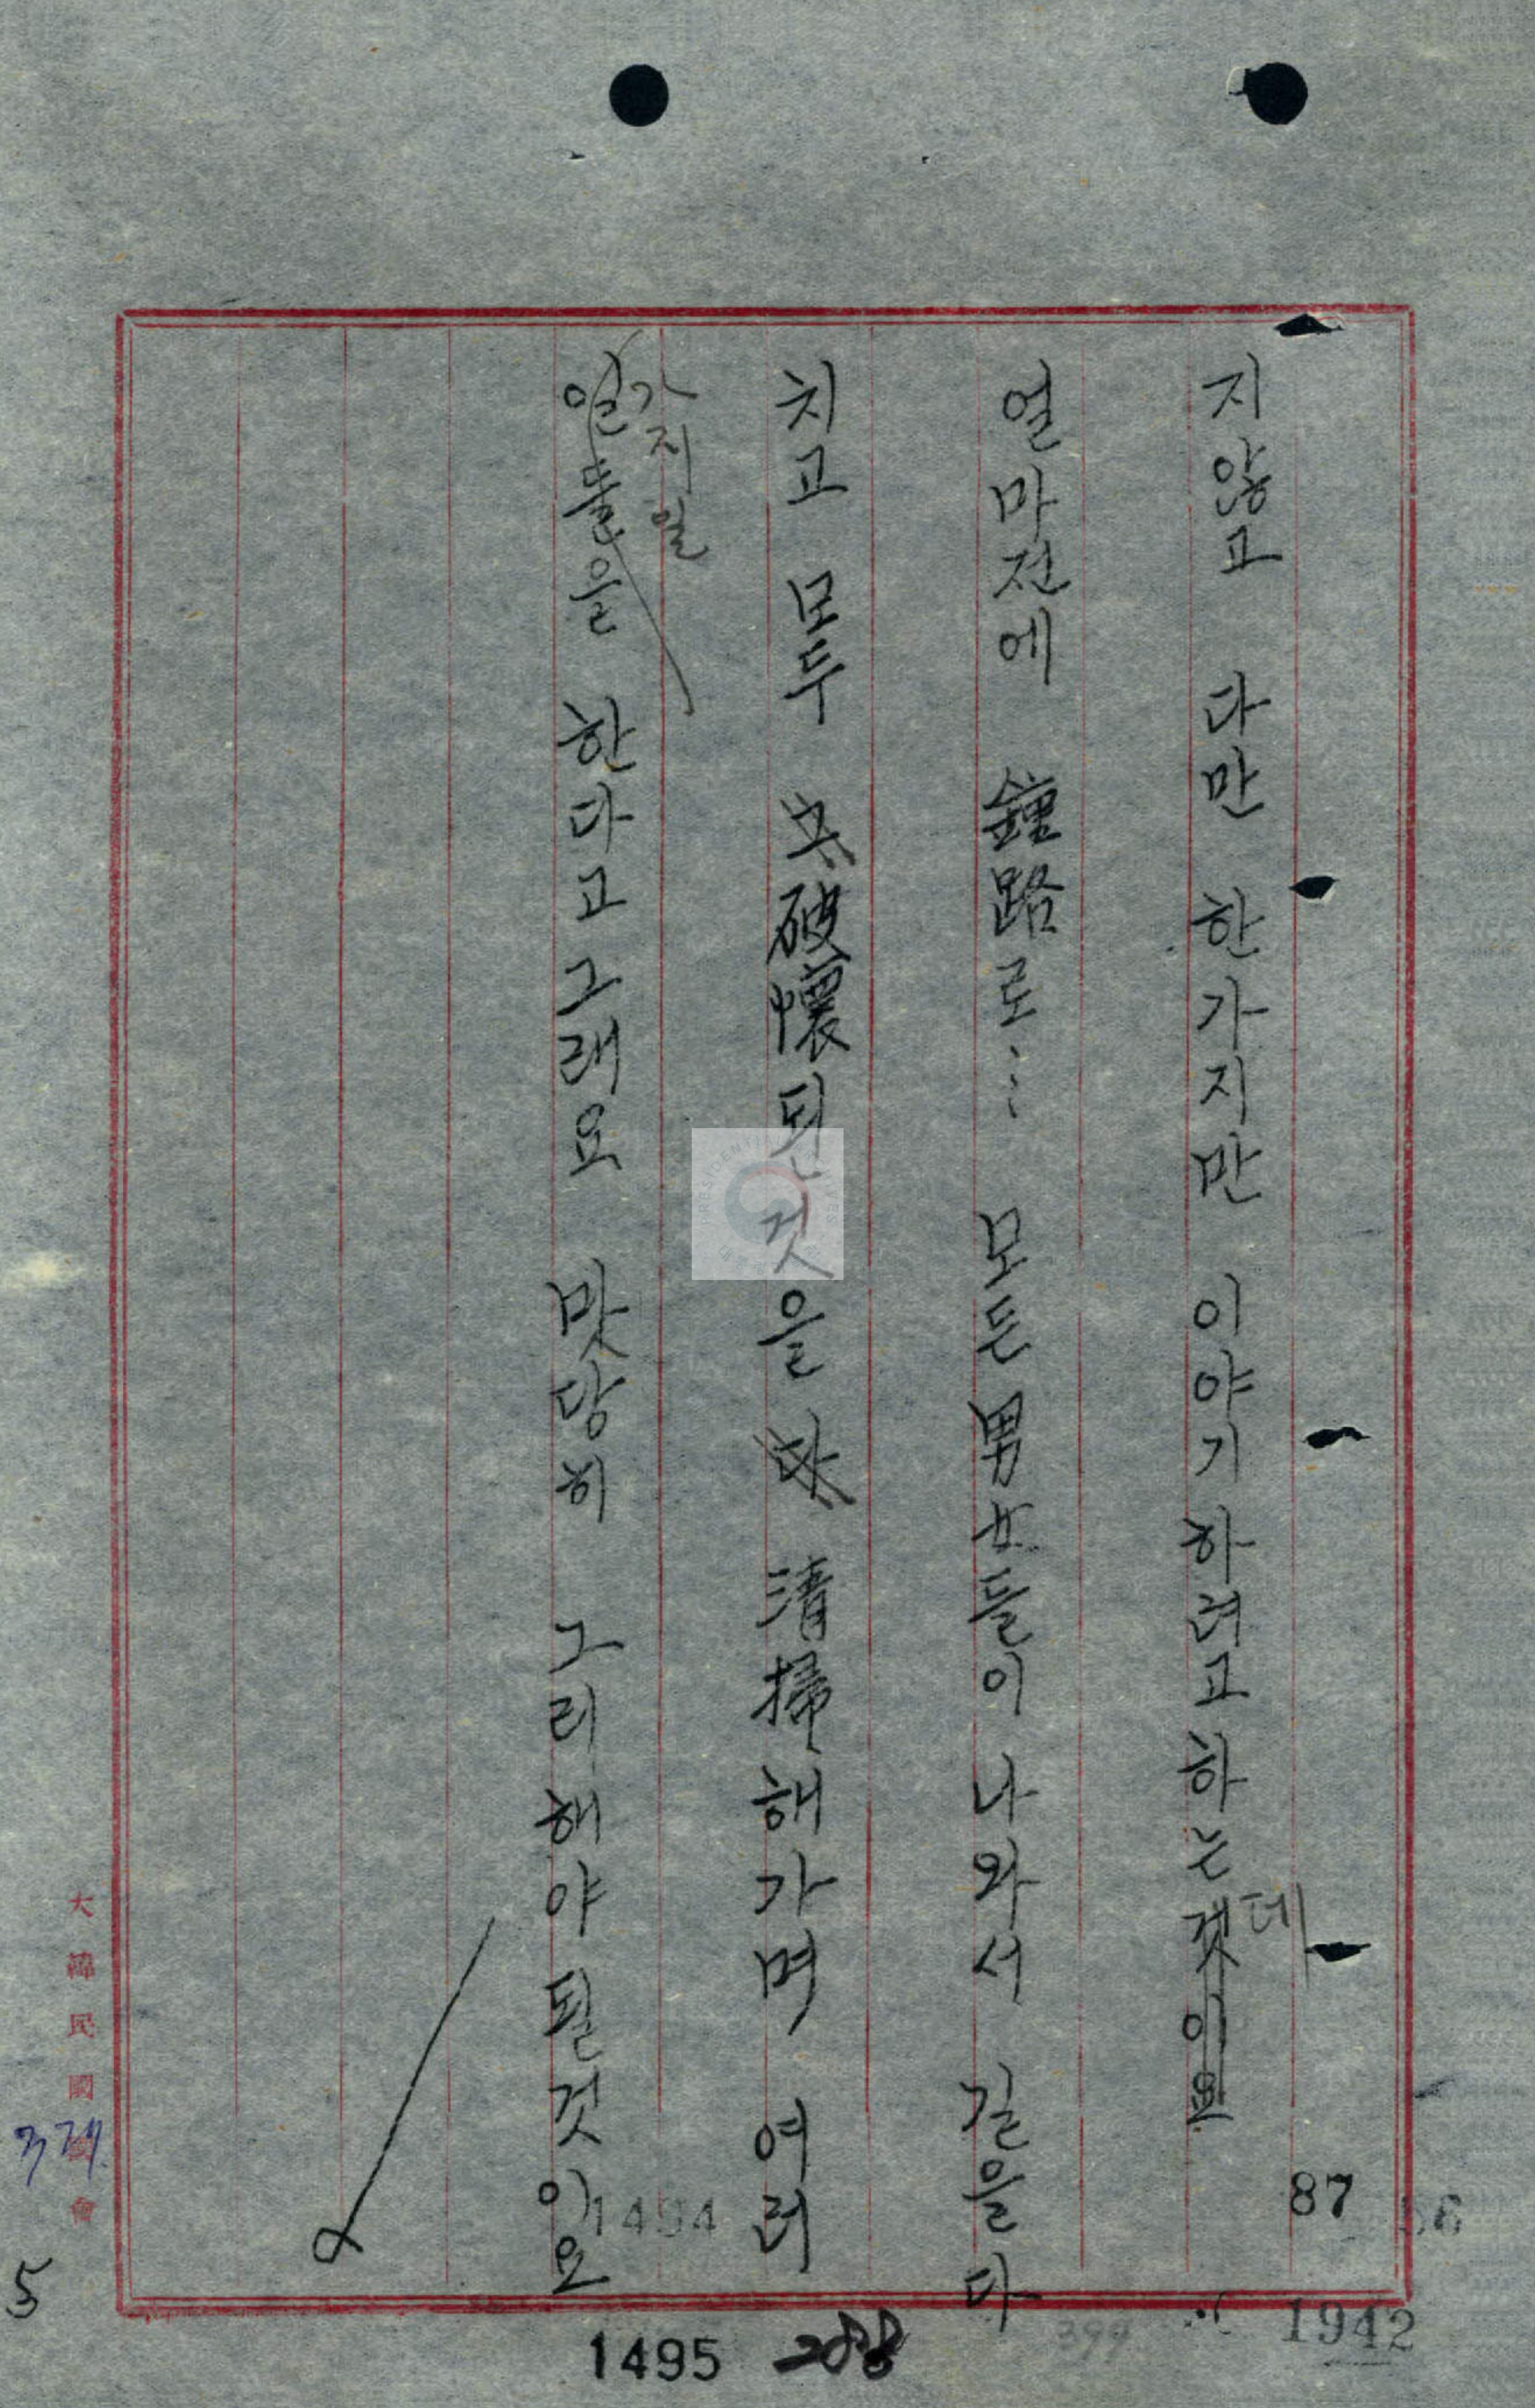 지않고 다만 한가지만 이야기하려고하는것이요
데
얼마전에 鐘路로… 모든 男女들이 나와서 길을다
치고 모두 破壞된것을 淸掃해가며 여러
가지일
일들을 한다고그래요 맛당히 그리해야될것이요
大韓民國國會
5
87
1494
1495
288
399
1942